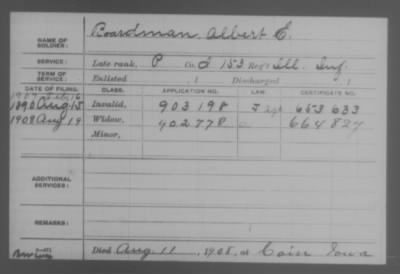 NAME OF SOLDIER: Boardman, Albert E.
SERVICE: Late rank, P Co. I 153 Reg't Ill. Inf.
TERM OF SERVICE: Enlisted , 1 Discharged , 1
DATE OF FILING. CLASS. APPLICATION NO. LAW. CERTIFICATE NO.
1890 Aug 15 Invalid, 903198 653 633
1908 Aug 19 Widow, 902778 664827
Minor,
ADDITIONAL SERVICES:
REMARKS:
Died Aug. 11, 1908, at Coin Iowa